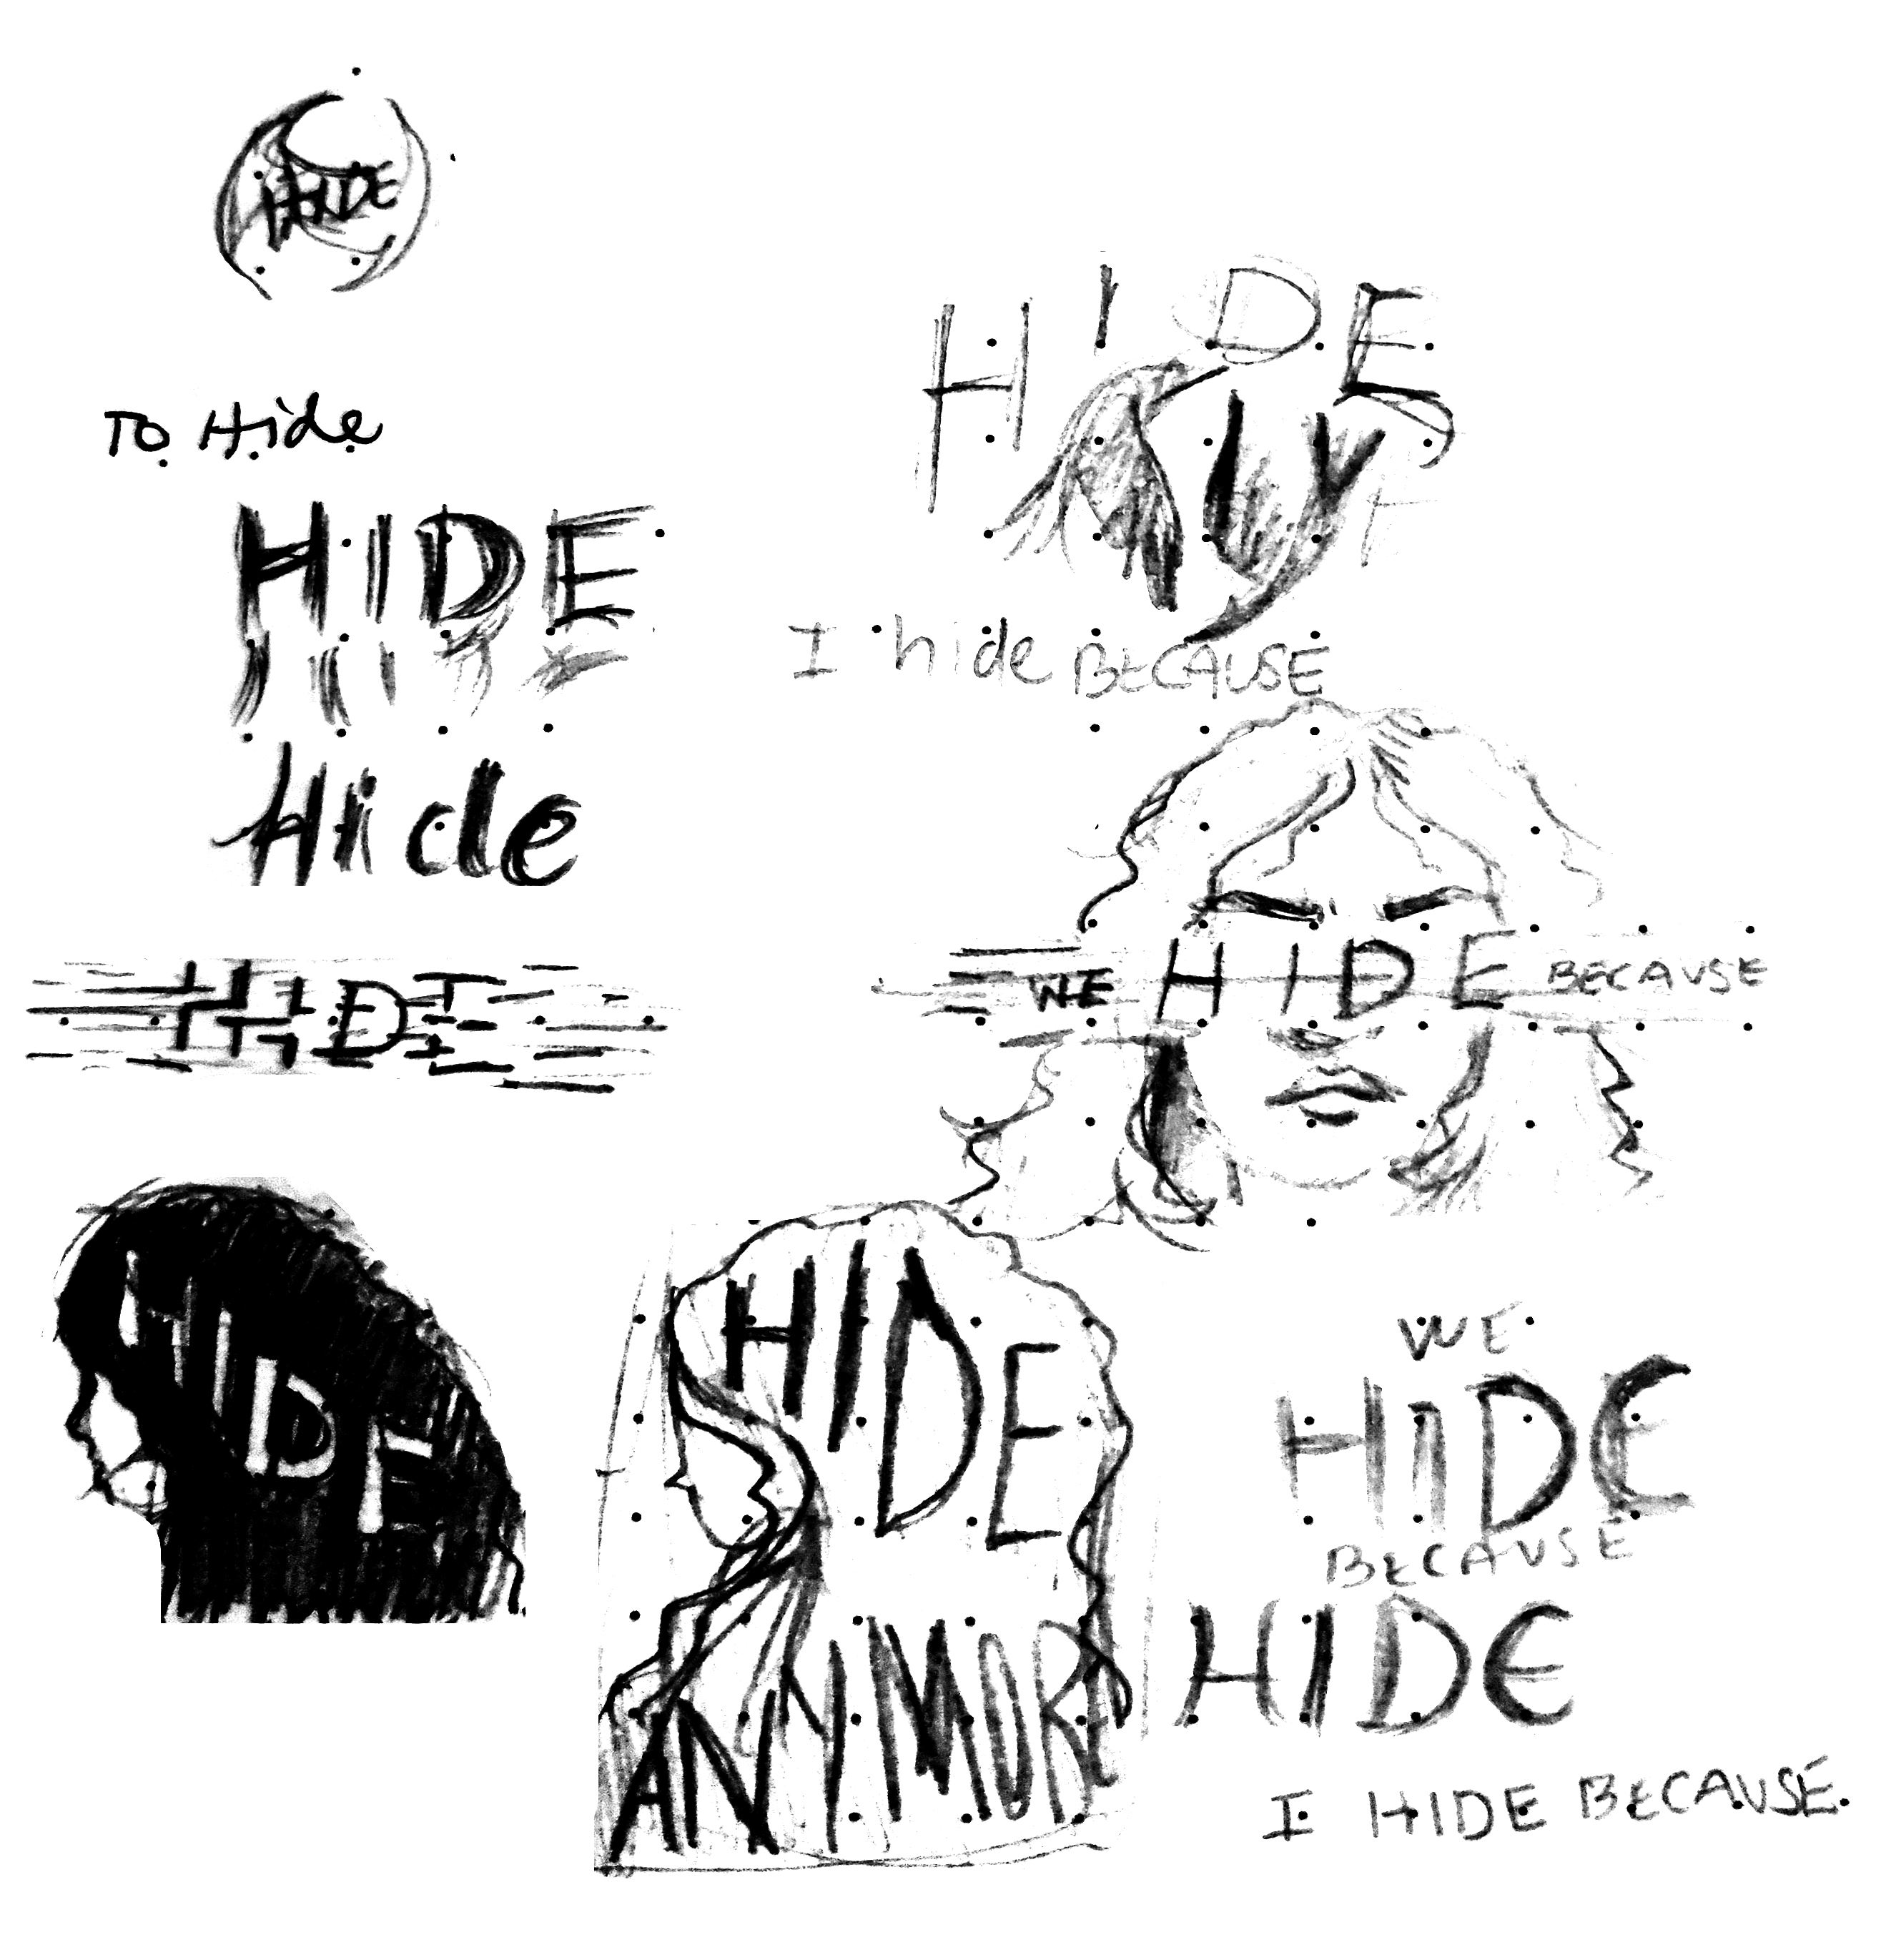 HIDE
TO Hide
HIDE
Hide
HIDE
HIDE
I hide BECAUSE
WE HIDE BECAUSE
HIDE
HIDE
ANYMORE
WE
HIDE
BECAUSE
HIDE
I HIDE BECAUSE